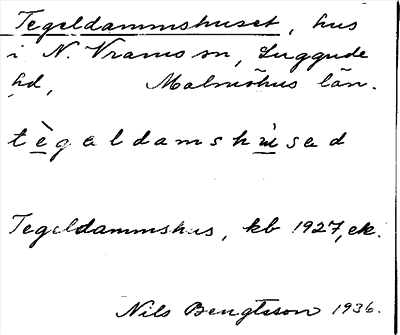 Tegeldammshuset, hus
i N. Vrams sn, Luggude
hd, Malmöhus län.
tègaldamshùsad
Tegeldammshus, kb 1927, ek.
Nils Bengtsson 1936.